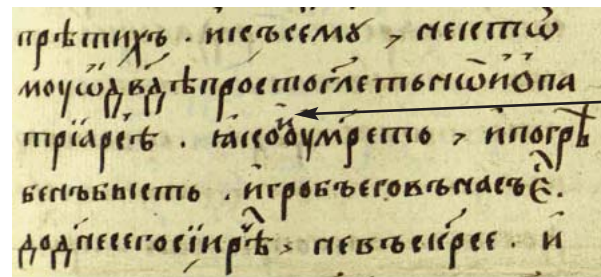 прѣтихъ . и къ семꙋ , не к тѡ
моу ѡ двдѣ просто глеть нѡ и ѻ па
трїарсѣ . ꙗко и оумреть , и погрѣ
бенъ бысть . и гробъ его въ насъ е .
до дне сего сїи рѣ , не въскрсе . и